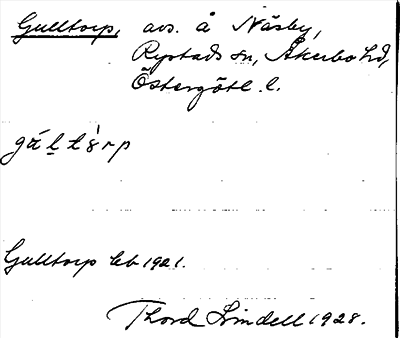 Gulltorp, avs. å Näsby,
Rystads sn, Åkerbo hd,
Östergötl. l.
Gulltorp kb 1921.
Thord Lindell 1928.